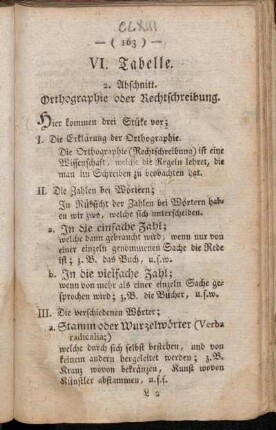 CLXIII
— ( 163 ) —
VI. Tabelle.
2. Abschnitt.
Orthographie oder Rechtschreibung.
Hier kommen drei Stüke vor;
I. Die Erklärung der Orthographie.
Die Orthographie (Rechtschreibung) ist eine
Wissenschaft, welche die Regeln lehret, die
man im Schreiben zu beobachten hat.
II. Die Zahlen bei Wörtern;
In Rüksicht der Zahlen bei Wörtern haben
wir zwo, welche sich unterscheiden.
a. In die einfache Zahl;
welche dann gebraucht wird, wenn nur von
einer einzeln genommenen Sache die Rede
ist; z.B. das Buch, u.s.w.
b. In die vielfache Zahl;
wenn von mehr als einer einzeln Sache ge-
sprochen wird; z.B. die Bücher, u.s.w.
III. Die verschiedenen Wörter;
a. Stamm oder Wurzelwörter (Verba
radicalia;)
welche durch sich selbst bestehen, und von
keinem andern hergeleitet werden; z.B.
Kranz wovon bekränzen, Kunst wovon
Künstler abstammen, u.s.f.
L 2